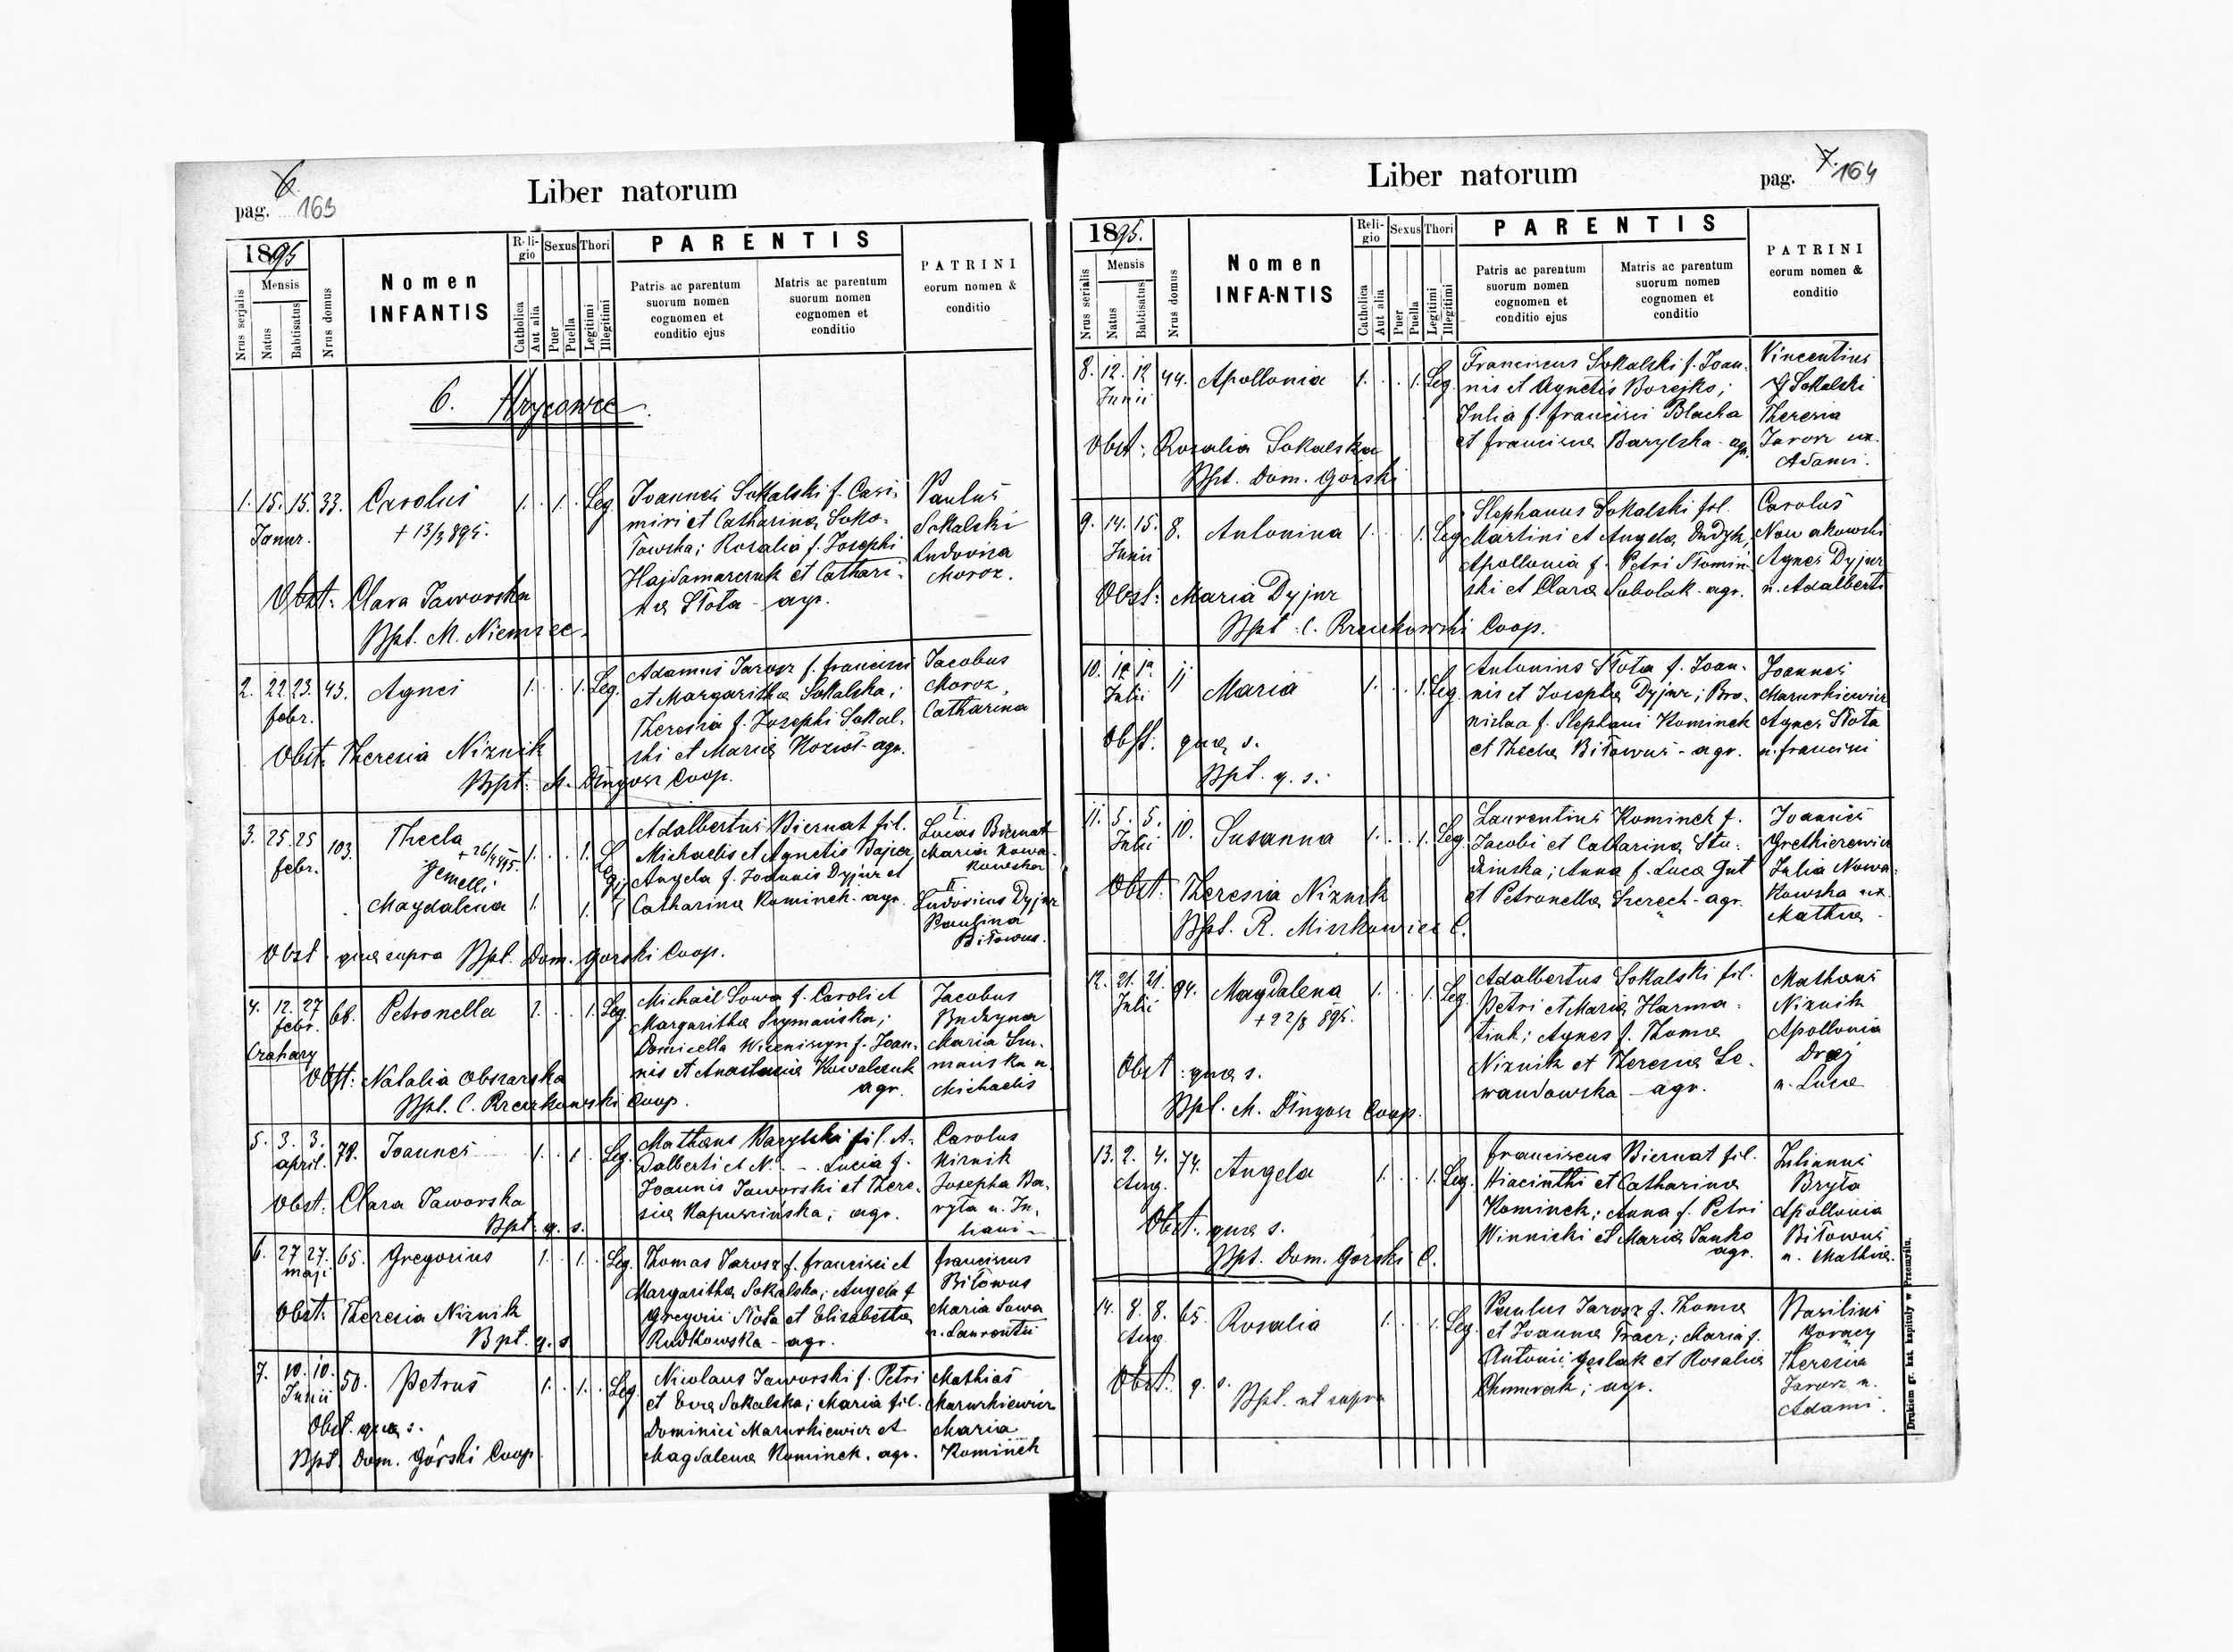 pag. 6. 163
Liber natorum
1895
Mensis
Nrus serialis
Natus
Babtisatus
Nrus domus
Nomen
INFANTIS
Reli-
gio
Sexus
Thori
Catholica
Aut alia
Puer
Puella
Legitimi
Illegitimi
PARENTIS
Patris ac parentum
suorum nomen
cognomen et
conditio ejus
Matris ac parentum
suorum nomen
cognomen et
conditio
PATRINI
eorum nomen &
conditio
6. Hrycowce
1. 15. 15. 33. Carolus 1. . 1. . Leg.
Januar. + 13/3 895.
Joannes Sokalski f. Casi-
miri et Catharina Soko-
łowska; Rosalia f. Josephi
Hajdamarczuk et Cathari-
na Słota - agr.
Paulus
Sokalski
Ludovica
Moroz.
Obst: Clara Jaworska
Bpt. M. Niemiec.
2. 22. 23. 43. Agnes 1. . . 1. Leg.
febr.
Adamus Jarosz f. Francisci
et Margaritha Sokalska;
Theresia f. Josephi Sokal-
ski et Maria Kozioł - agr.
Jacobus
Moroz,
Catharina
Obst. Theresia Niznik
Bpt. M. Dingosz Coop.
3. 25. 25 103. Thecla 1. . . 1. L
febr. + 26/4 95.
Gemelli
Magdalena 1. 1.
Adalbertus Biernat fil.
Michaelis et Agnetis Bajer
Angela f. Joannis Dyjur et
Catharina Kominek - agr.
I.
Lucas Biernat
Maria Nowa-
kowska
II.
Ludovicus Dyjur
Paulina
Biłowus.
Obst. quae supra Bpt. Dom. Gorski Coop.
4. 12. 27 68. Petronella 1. . . 1. Leg.
febr.
Crahary
Michaël Sowa f. Caroli et
Margaritha Szymańska;
Domicella Wiceniszyn f. Joan-
nis et Anastasia Kowalczuk
agr.
Jacobus
Budzyna
Maria Szu-
mańska u.
Michaelis
Obst: Natalia Obszarska
Bpt. C. Rzeszkowski Coop.
5. 3. 3. 78. Joannes 1. . 1 . Leg.
april.
Mathaeus Barylski fil. A-
dalberti et N. - . Lucia f.
Joannis Jaworski et There-
sia Kapuscinska; agr.
Carolus
Niznik
Josepha Ba-
ryła u. Ju-
liani -
Obst. Clara Jaworska
Bpt. q. s.
6. 27 27. 65. Gregorius 1. . 1. . Leg.
maji
Thomas Jarosz f. Francisci et
Margaritha Sokalska; Angela f
Gregorii Słota et Elisabetha
Rudkowska - agr.
Franciscus
Biłowus
Maria Sowa
u. Laurentii
Obst. Theresia Niznik
Bpt. q. s
7. 10. 10. 50. Petrus 1. . 1. . Leg.
Junii
Nicolaus Jaworski f. Petri
et Eva Sokalska; Maria fil.
Dominici Mazurkiewicz et
Magdalena Kominek. agr.
Mathias
Mazurkiewicz
Maria
Kominek
Obst. quae s.
Bpt. Dom. Górski Coop.
Liber natorum
pag. 7. 164
1895.
Mensis
Nrus serialis
Natus
Babtisatus
Nrus domus
Nomen
INFANTIS
Reli-
gio
Sexus
Thori
Catholica
Aut alia
Puer
Puella
Legitimi
Illegitimi
PARENTIS
Patris ac parentum
suorum nomen
cognomen et
conditio ejus
Matris ac parentum
suorum nomen
cognomen et
conditio
PATRINI
eorum nomen &
conditio
8. 12. 12 44. Apollonia 1. . . 1. Leg.
Junii
Franciscus Sokalski f. Joan-
nis et Agnetis Borejko;
Julia f. Francisci Blacha
et Francisca Barylska - agr.
Vincentius
Sokalski
Theresia
Jarosz ux.
Adami.
Obst: Rosalia Sokalska
Bpt. Dom. Gorski
9. 14. 15. 8. Antonina 1. . . 1. Leg.
Junii
Stephanus Sokalski fil.
Martini et Angela Dudyk,
Apollonia f. Petri Słomin-
ski et Clara Sobolak - agr.
Carolus
Nowakowski
Agnes Dyjur
u. Adalberti
Obst: Maria Dyjur
Bpt. C. Rzeszkowski Coop.
10. 1a 1a 11 Maria 1. . . 1. Leg.
Julii
Antonius Słota f. Joan-
nis et Josepha Dyjur; Bro-
nislaa f. Stephani Kominek
et Thecla Biłowus - agr.
Joannes
Mazurkiewicz
Agnes Słota
u. Francisci
Obst. quae s.
Bpt. q. s.
11. 5. 5. 10. Susanna 1. . . 1. Leg.
Julii
Laurentius Kominek f.
Jacobi et Catharina Stu-
dzinska; Anna f. Luca Gut
et Petronella Szerech - agr.
Joannes
Grethierewicz
Julia Nowa-
kowska ux.
Mathia -
Obst. Theresia Niznik
Bpt. R. Miszkowicz C.
12. 21. 21. 94. Magdalena 1. . . 1. Leg.
Julii + 22/8 895.
Adalbertus Sokalski fil.
Petri et Maria Harma-
tiuk; Agnes f. Thoma
Niznik et Theresia Le-
wandowska - agr.
Mathaeus
Niznik
Apollonia
Draj
u. Luca
Obst: quae s.
Bpt. M. Dingosz Coop.
13. 2. 4. 74. Angela 1. . . 1. Leg.
Aug.
Franciscus Biernat fil.
Hiacinthi et Catharina
Kominek; Anna f. Petri
Winnicki et Maria Janko
agr.
Julianus
Bryła
Apollonia
Biłowus
u. Mathia.
Obst. quae s.
Bpt. Dom. Górski C.
14. 8. 8. 65. Rosalia 1. . . 1. Leg.
Aug
Paulus Jarosz f. Thoma
et Joanna Tracz; Maria f.
Antonii Geslak et Rosalia
agr.
Basilius
Goracy
Theresia
Jarosz u.
Adami.
Obst. q. s.
Bpt. ut supra
Drukiem gr. kat. kapituły w Przemyślu.